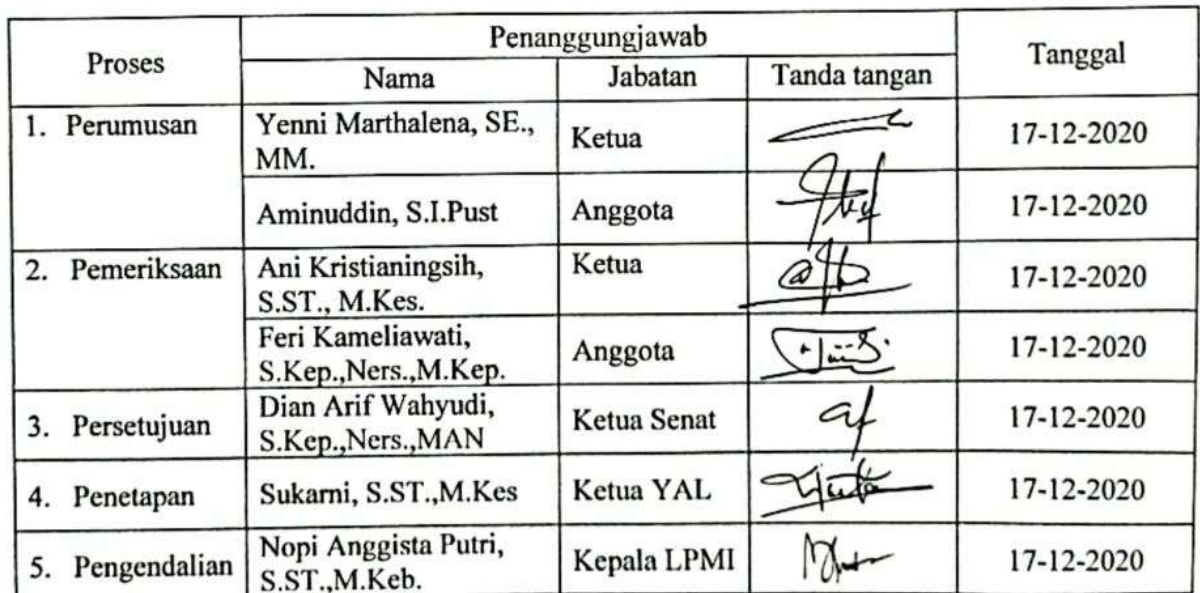 Proses Penanggungjawab Tanggal
Nama Jabatan Tanda tangan
1. Perumusan Yenni Marthalena, SE., MM. Ketua 17-12-2020
Aminuddin, S.I.Pust Anggota 17-12-2020
2. Pemeriksaan Ani Kristianingsih, S.ST., M.Kes. Ketua 17-12-2020
Feri Kameliawati, S.Kep.,Ners.,M.Kep. Anggota 17-12-2020
3. Persetujuan Dian Arif Wahyudi, S.Kep.,Ners.,MAN Ketua Senat 17-12-2020
4. Penetapan Sukarni, S.ST.,M.Kes Ketua YAL 17-12-2020
5. Pengendalian Nopi Anggista Putri, S.ST.,M.Keb. Kepala LPMI 17-12-2020